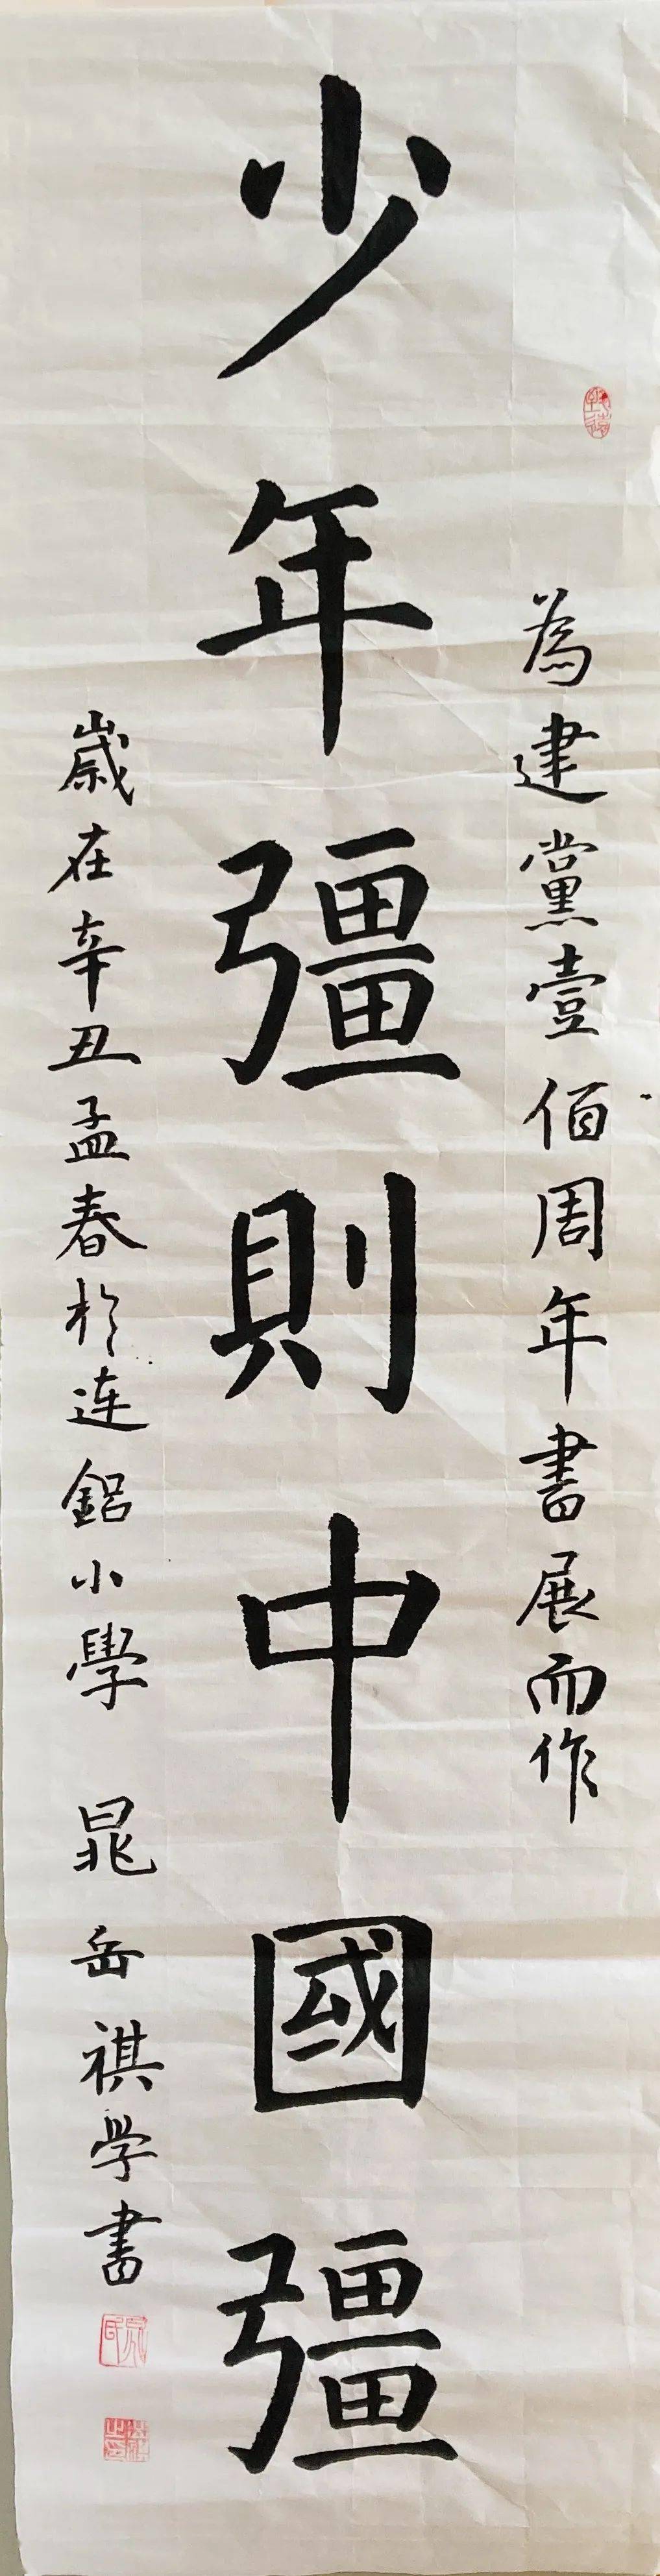 為建黨壹佰周年書展而作
少年彊則中國彊
歲在辛丑孟春於连鋁小學 晁岳祺学書